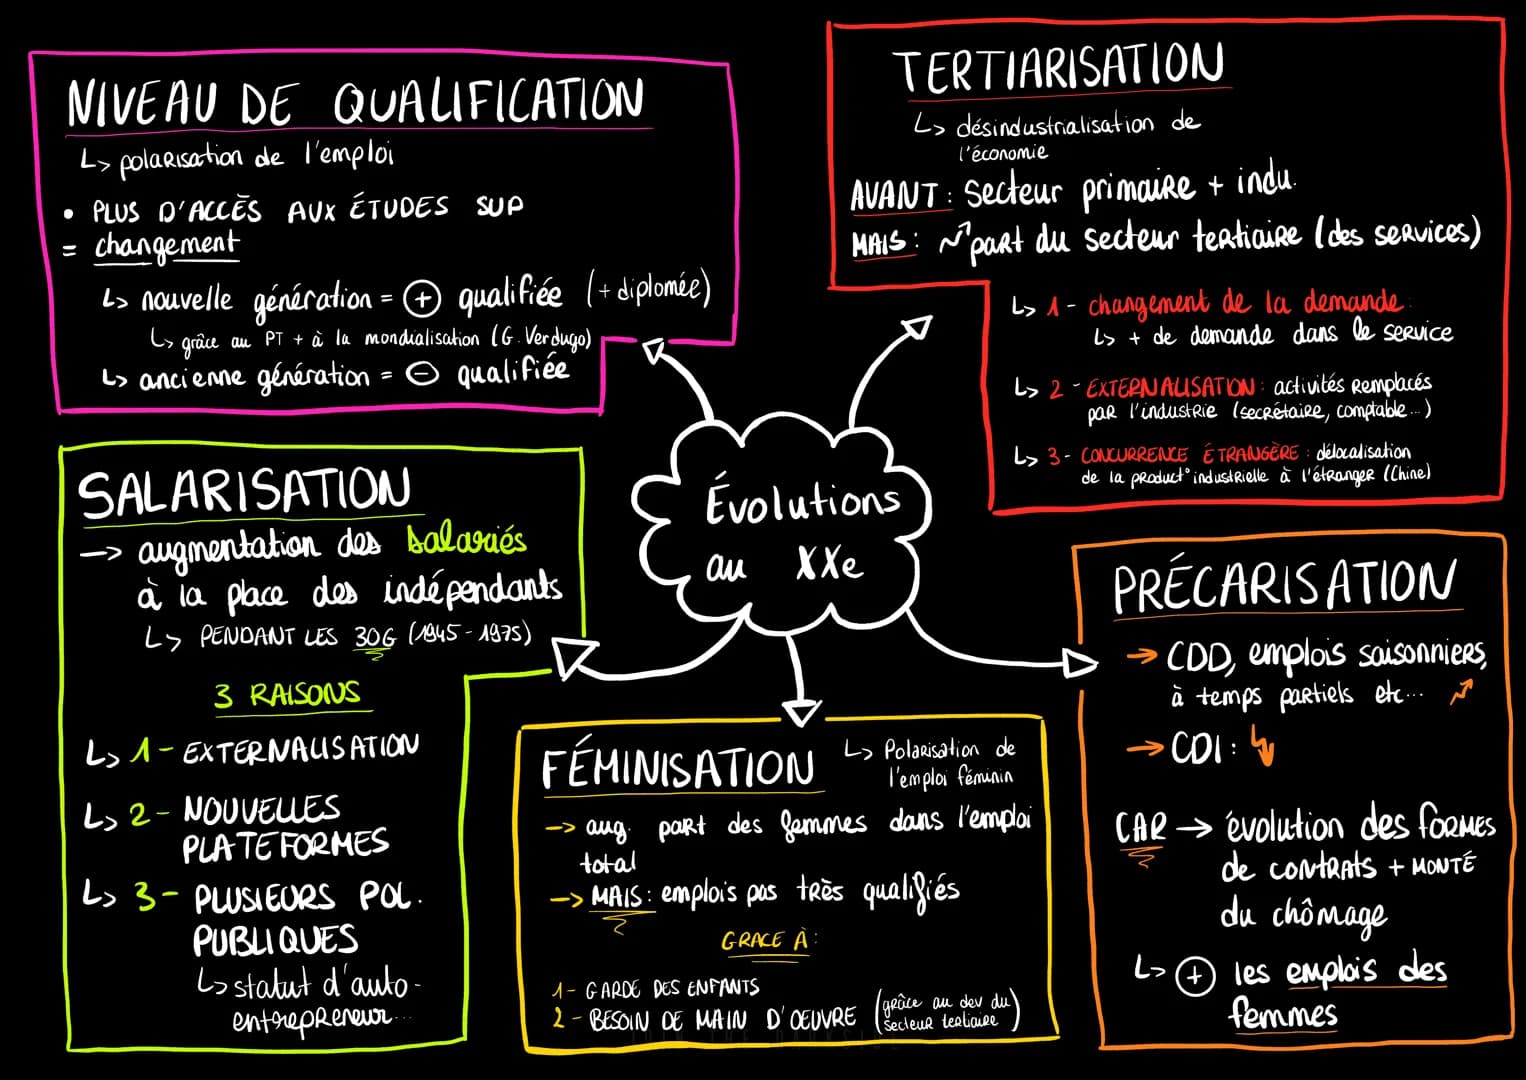 NIVEAU DE QUALIFICATION
↳ polarisation de l'emploi
• PLUS D'ACCÈS AUX ÉTUDES SUP
= changement
↳ nouvelle génération = ⊕ qualifiée (+ diplomée)
↳ grâce au PT + à la mondialisation (G. Verdugo)
↳ ancienne génération = ⊖ qualifiée
TERTIARISATION
↳ désindustrialisation de
l'économie
AVANT : Secteur primaire + indu.
MAIS : ↗ part du secteur tertiaire (des services)
↳ 1 - changement de la demande :
↳ + de demande dans le service
↳ 2 - EXTERNALISATION : activités remplacés
par l'industrie (secrétaire, comptable...)
↳ 3 - CONCURRENCE ÉTRANGÈRE : délocalisation
de la product° industrielle à l'étranger (Chine)
Évolutions
au XXe
SALARISATION
→ augmentation des salariés
à la place des indépendants
↳ PENDANT LES 30G (1945 - 1975)
3 RAISONS
↳ 1 - EXTERNALISATION
↳ 2 - NOUVELLES
PLATEFORMES
↳ 3 - PLUSIEURS POL.
PUBLIQUES
↳ statut d'auto-
entrepreneur...
FÉMINISATION
↳ Polarisation de
l'emploi féminin
→ aug. part des femmes dans l'emploi
total
→ MAIS : emplois pas très qualifiés
GRACE À :
1 - GARDE DES ENFANTS
2 - BESOIN DE MAIN D'OEUVRE (grâce au dev du
secteur tertiaire)
PRÉCARISATION
→ CDD, emplois saisonniers,
à temps partiels etc... ↗
→ CDI : ↘
CAR → évolution des formes
de contrats + MONTÉ
du chômage
↳ ⊕ les emplois des
femmes